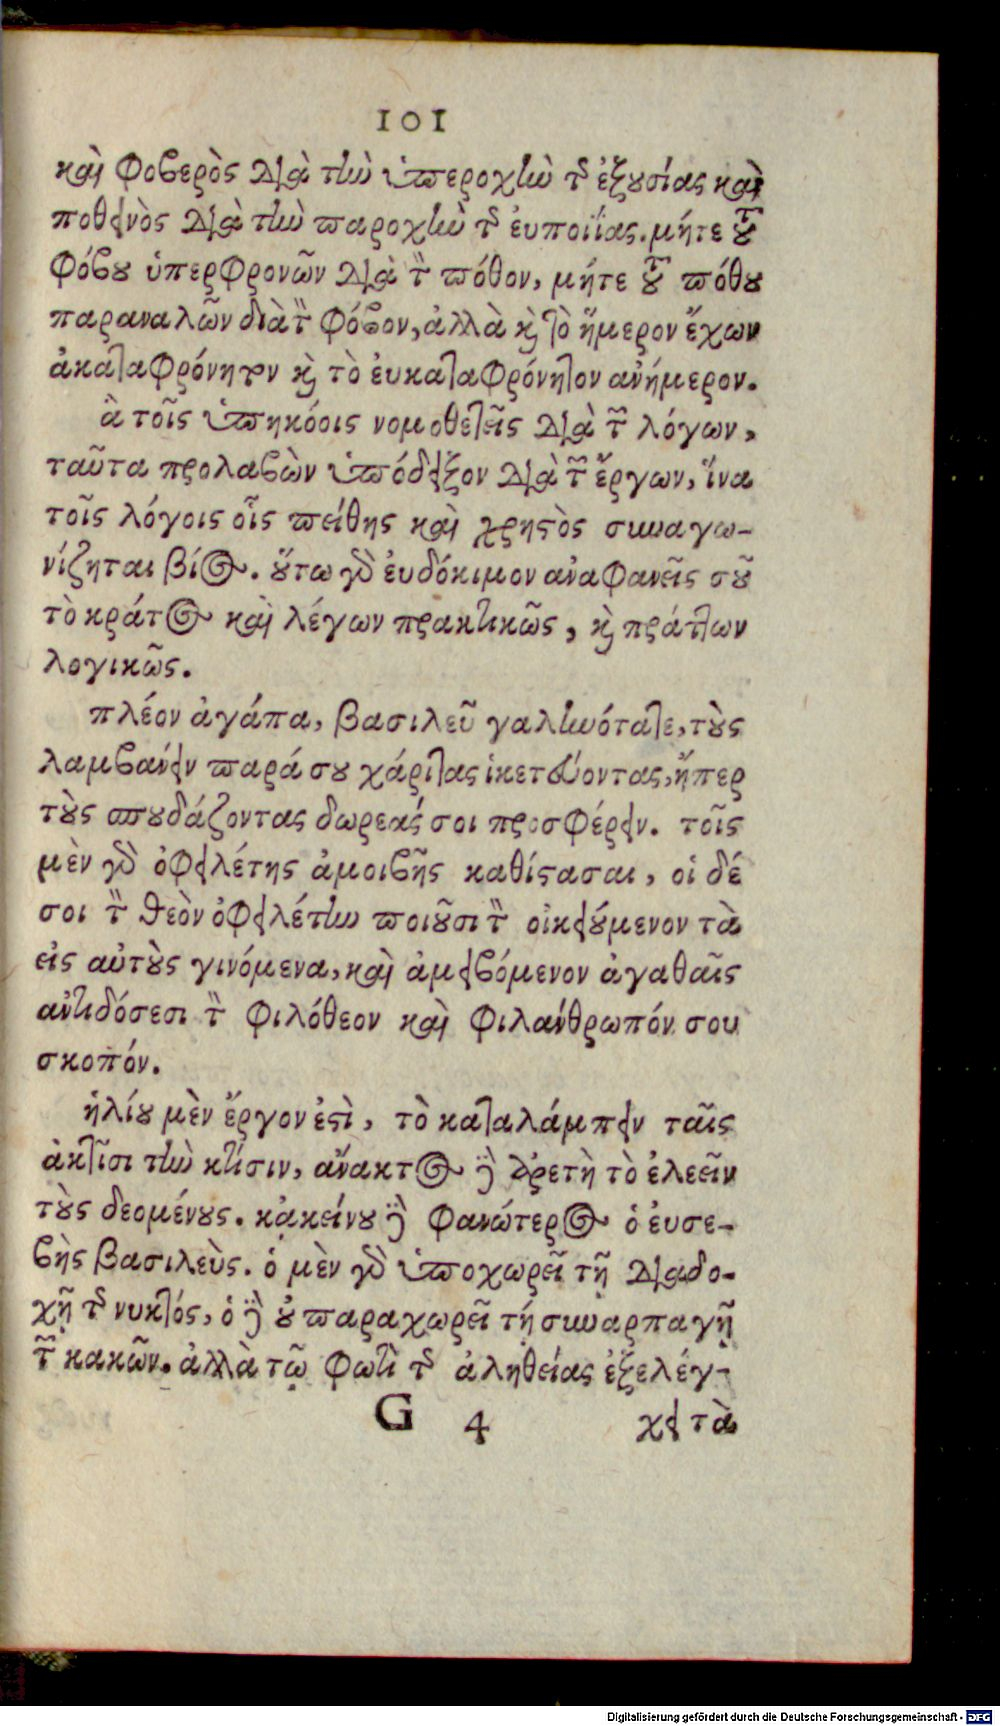 101
καὶ φοβερὸς διὰ τὴν ὑπεροχὴν τῆς ἐξουσίας καὶ
ποθεινὸς διὰ τὴν παροχὴν τῆς ἐυποιΐας. μήτε τοῦ
φόβου ὑπερφρονῶν διὰ τὸν πόθον, μήτε τοῦ πόθου
παραναλῶν διὰ τὸν φόβον, ἀλλὰ καὶ τὸ ἥμερον ἔχων
ἀκαταφρόνητον καὶ τὸ ἐυκαταφρόνητον ανήμερον.
ἃ τοῖς ὑπηκόοις νομοθετεῖς διὰ τῶν λόγων,
ταῦτα προλαβὼν ὑπόδειξον διὰ τῶν ἔργων, ἵνα
τοῖς λόγοις οἷς πείθης καὶ χρηστὸς συναγω-
νίζηται βίος. ὅυτω γὰρ ἐυδόκιμον αναφανεῖς σοῦ
τὸ κράτος καὶ λέγων πρακτικῶς, καὶ πράττων
λογικῶς.
πλέον ἀγάπα, βασιλεῦ γαληνότατε, τοὺς
λαμβάνειν παρά σου χάριτας ἱκετέυοντας, ἤπερ
τοὺς σπουδάζοντας δωρεάς σοι προσφέρειν. τοῖς
μὲν γὰρ ὀφειλέτης ἀμοιβῆς καθίστασαι, οἱ δέ
σοι τὸν θεὸν ὀφειλέτην ποιοῦσι τὸν οἰκειούμενον τὰ
εἰς αὐτοὺς γινόμενα, καὶ ἀμειβόμενον ἀγαθαῖς
αντιδόσεσι τὸν φιλόθεον καὶ φιλάνθρωπόν σου
σκοπόν.
ἡλίου μὲν ἔργον ἐστὶ, τὸ καταλάμπειν ταῖς
ἀκτῖσι τὴν κτίσιν, ἄνακτος δὲ ἀρετὴ τὸ ἐλεεῖν
τοὺς δεομένους. κᾀκείνου δὲ φανώτερος ὁ ἐυσε-
βὴς βασιλεὺς. ὁ μὲν γὰρ ὑποχωρεῖ τῇ διαδο-
χῇ τῆς νυκτός, ὁ δὲ οὐ παραχωρεῖ τῇ συναρπαγῇ
τῶν κακῶν. ἀλλὰ τῷ φωτὶ τῆς ἀληθείας ἐξελέγ-
G 4 χει τὰ
Digitalisierung gefördert durch die Deutsche Forschungsgemeinschaft - DFG